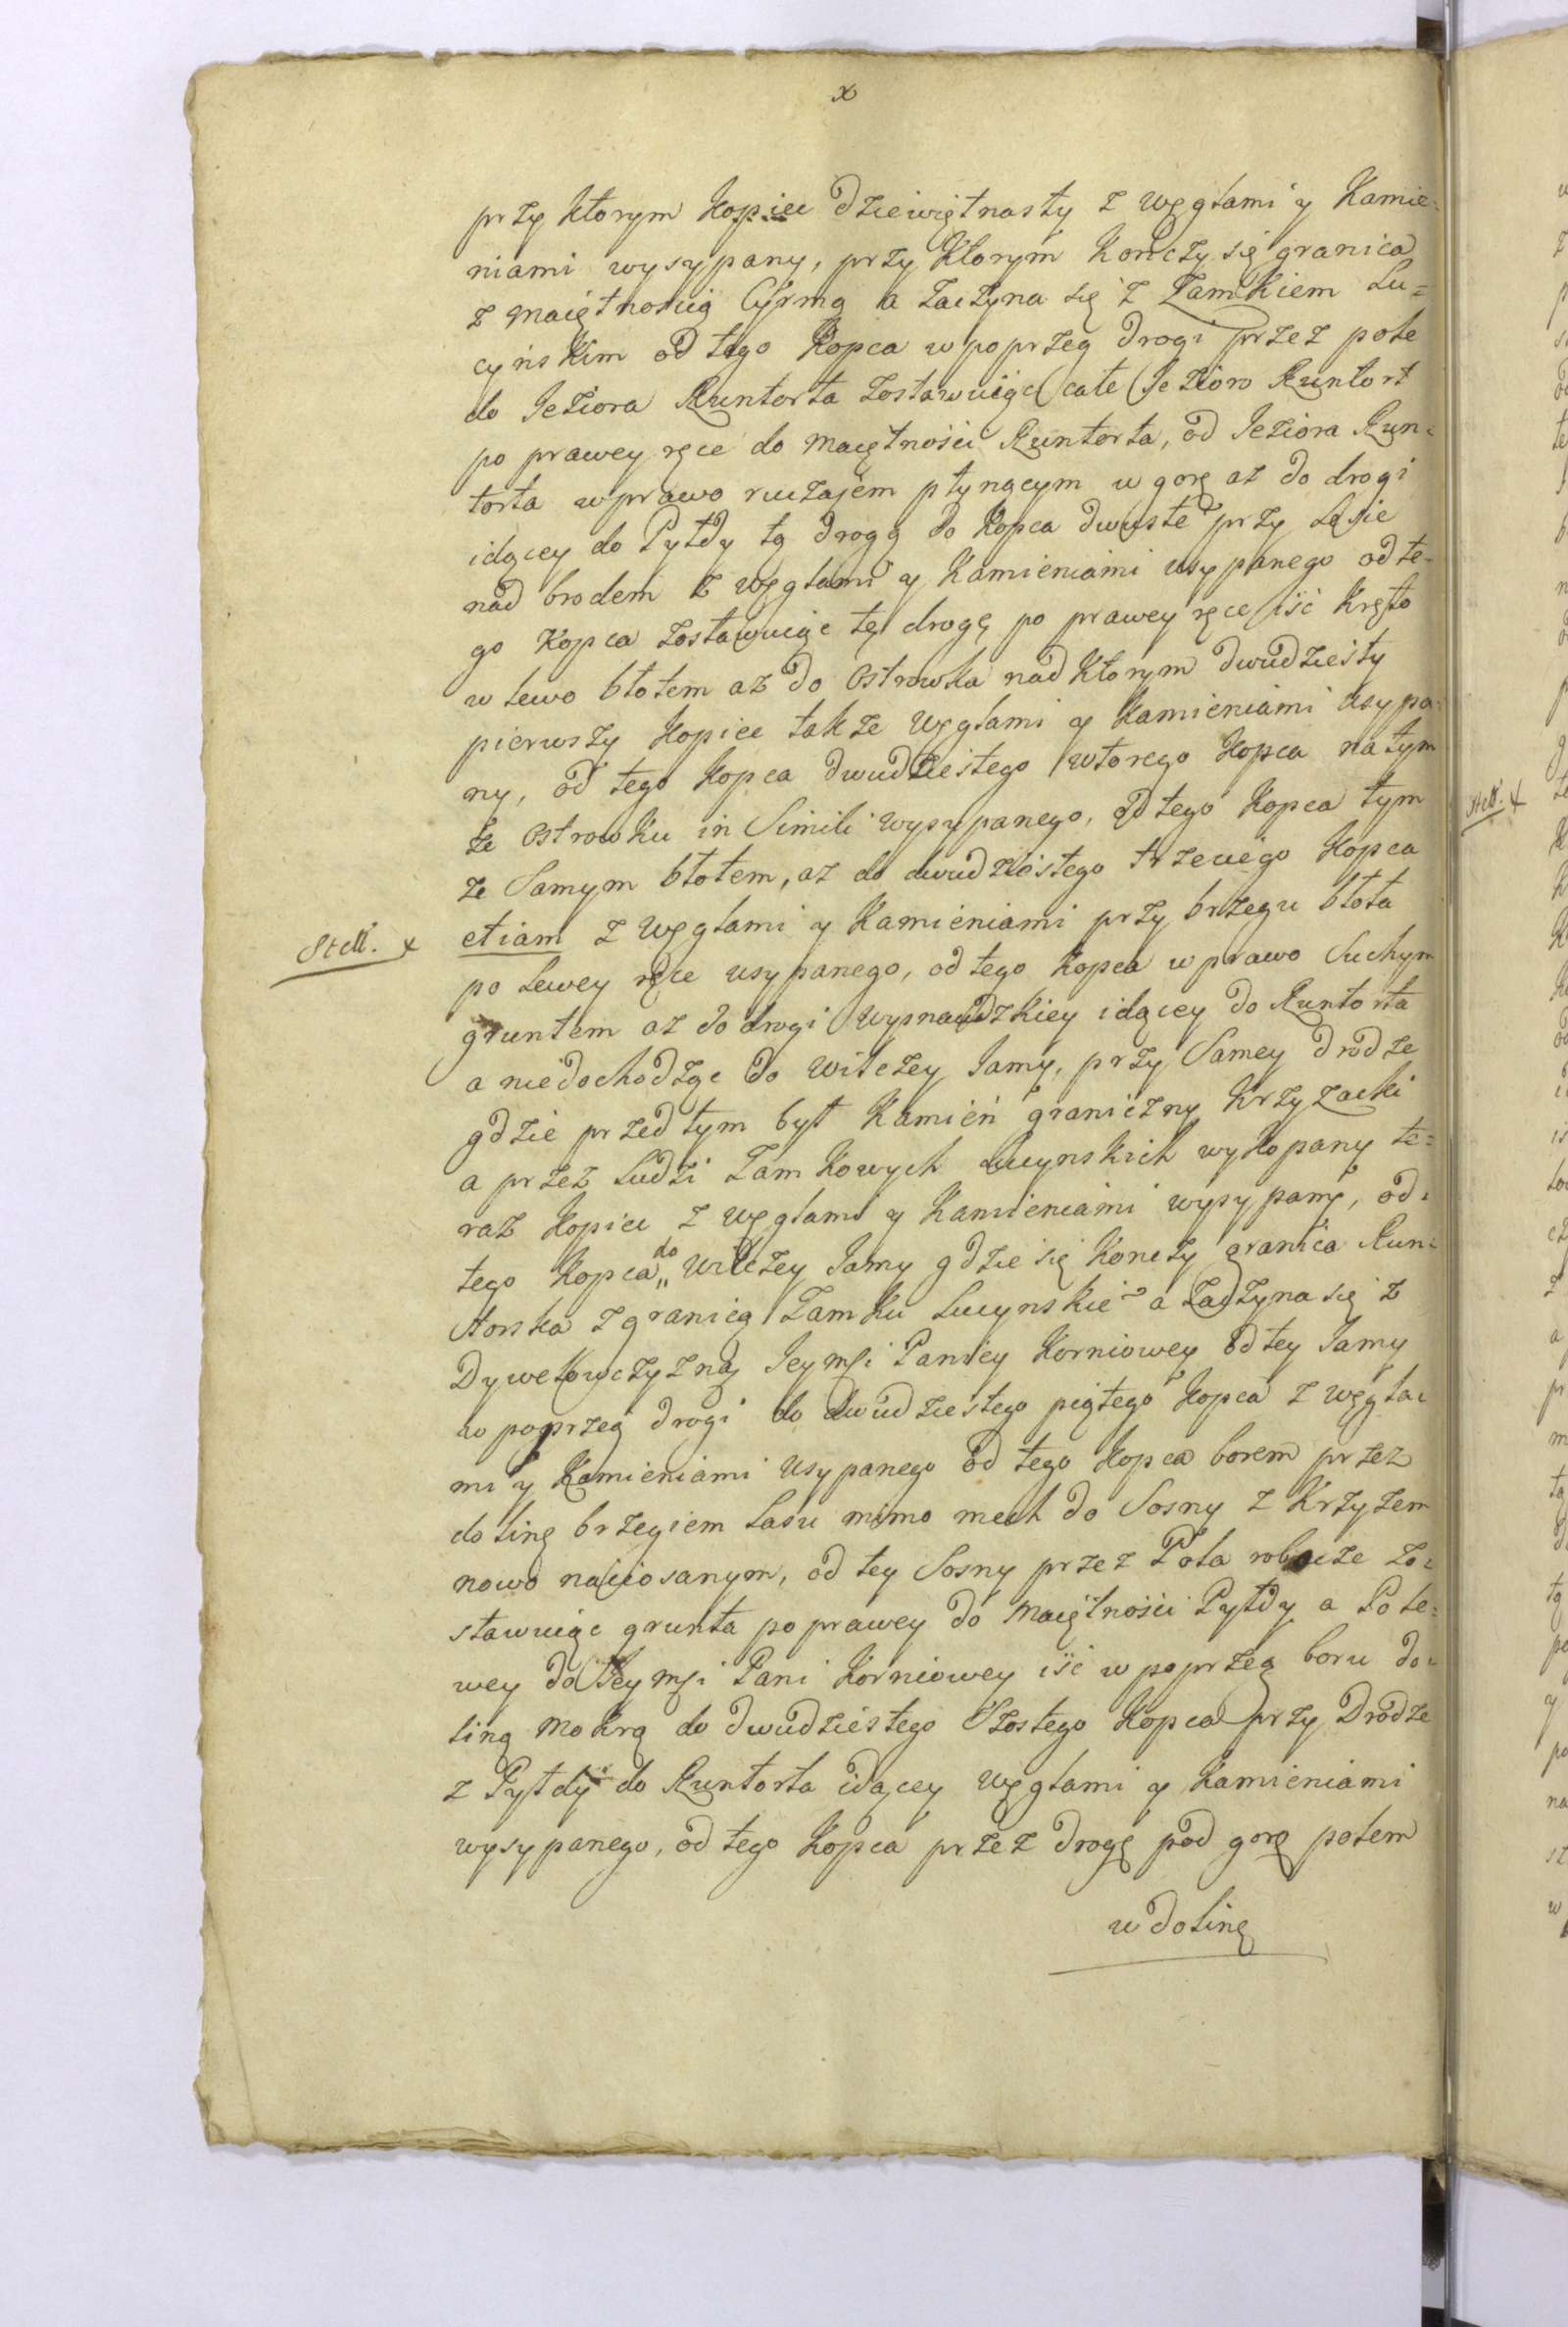 x
przy ktorym kopiec dziewiętnasty z węgłami y Kamie=
niami wysypany, przy ktorym kończy się granica
z maiętnością Cyrmą a zaczyna się z Zamkiem Lu=
cyńskim od tego kopca w poprzeg drogi przez pole
do Jeziora Runtorta zostawuiąc całe Jezioro Runtort
po prawey ręce do maiętności Runtorta, od Jeziora Run=
torta w prawo ruczajem płynącym w gorę aż do drogi
idącey do Pyłdy tą drogą do kopca dwuste° przy Lesie
nad brodem z węgłami y Kamieniami usypanego od te=
go kopca zostawuiąc tę drogę po prawey ręce iść kręto
w lewo błotem aż do Ostrowka nad ktorym dwudziesty
pierwszy kopiec także węgłami y kamieniami usypa=
ny, od tego kopca dwudziestego wtorego kopca na tym
że ostrowku in Simili wysypanego, od tego kopca tym
że Samym błotem, aż do dwudziestego trzeciego kopca
Stell. x etiam z węgłami y Kamieniami przy brzegu błota
po Lewey ręce usypanego, od tego kopca w prawo Suchym
gruntem aż do drogi idącey do Runtorta
a niedochodząc do wilczey Jamy, przy Samey drodze
gdzie przed tym był Kamień graniczny krzyzacki
a przez Ludzi Zamkowych Lucynskich wykopany te=
raz kopiec z węgłami y Kamieniami wysypany, od=
tego kopca do wilczey Jamy gdzie się konczy granica Run=
torska z granicą Zamku Lucynskie° a zaczyna się z
Dywetowczyzną Jeymści Paniey Korniowey od tey Jamy
w poprzeg drogi do dwudziestego piątego kopca z węgła=
mi y Kamieniami usypanego od tego kopca borem przez
dolinę brzegiem Lasu mimo mech do Sosny z krzyżem
nowo naciosanym, od tey Sosny przez Pola robocze zo=
stawuiąc grunta po prawey do maiętności Pyłdy a Po le=
wey do Jeymści Pani Korniowey iść w poprzeg boru do=
liną mokrą do dwudziestego Szostego kopca przy Drodze
z Pyłdy do Runtorta idącey węgłami y kamieniami
wysypanego, od tego kopca przez drogę pod gorę polem
w dolinę
Stell. x